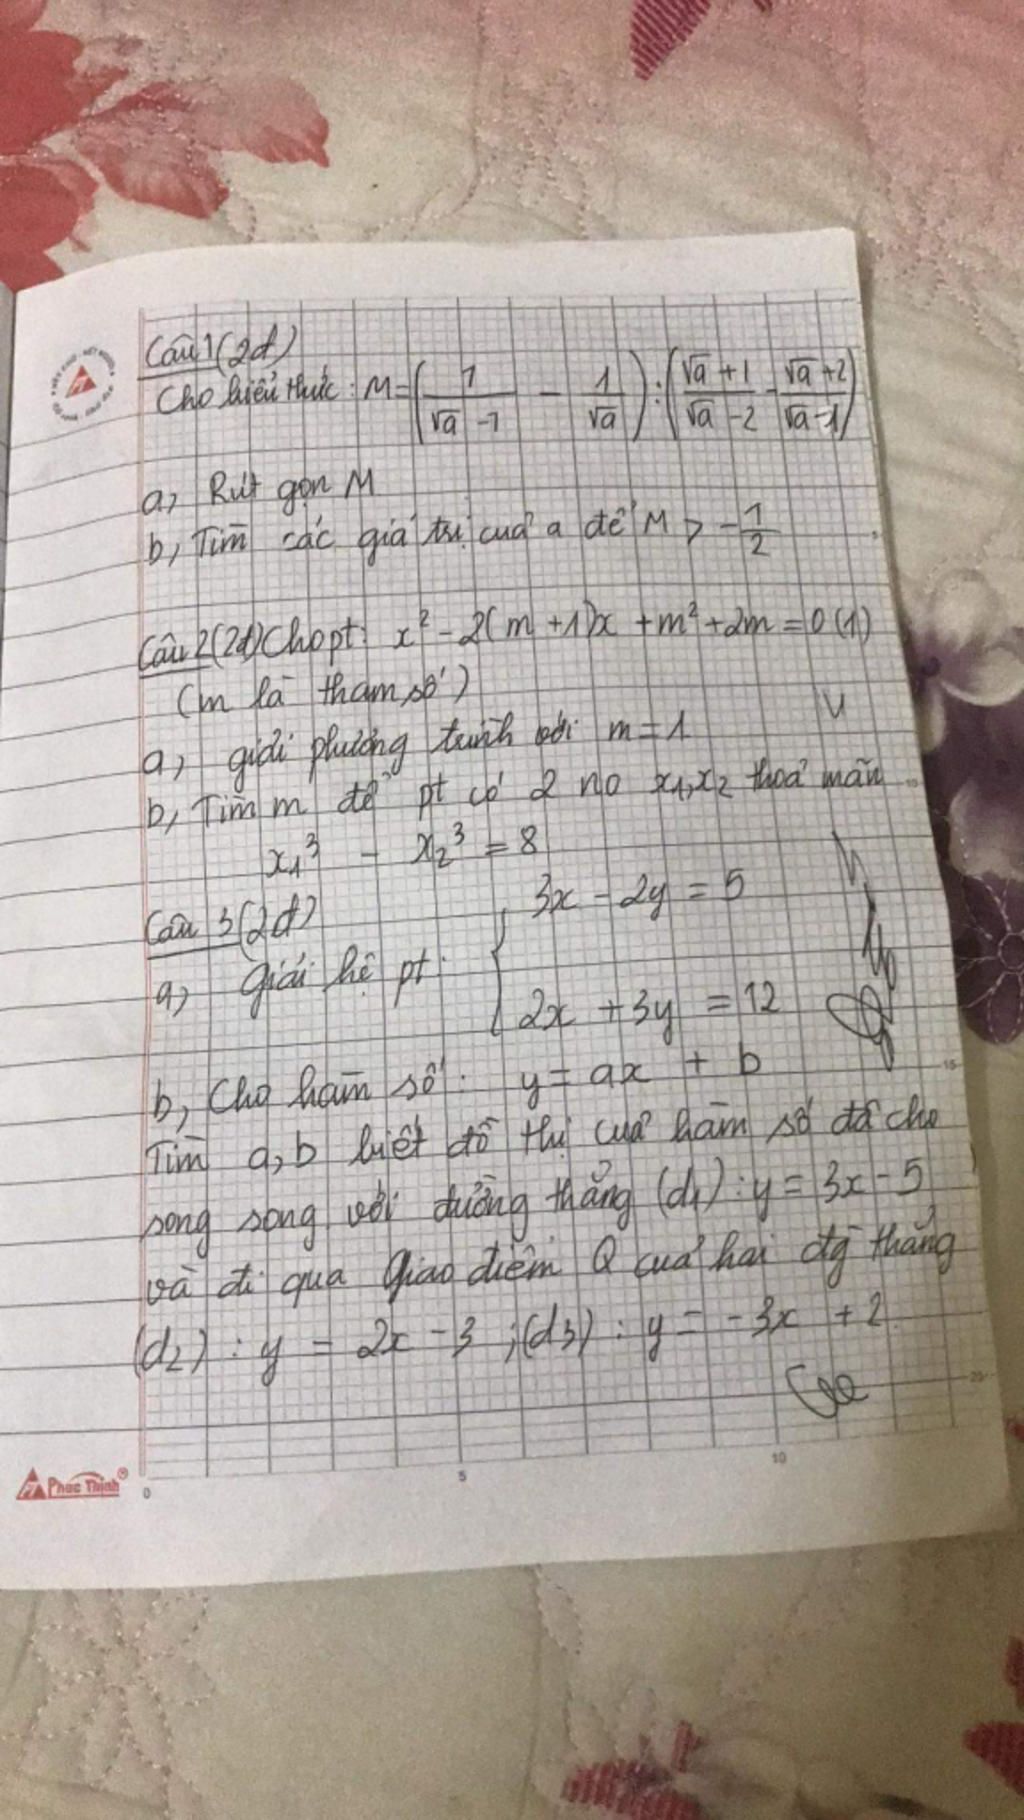 Câu 1 (2đ)
Cho biểu thức: M = (1/(√a - 1) - 1/√a) : ((√a + 1)/(√a - 2) - (√a + 2)/(√a - 1))
a, Rút gọn M
b, Tìm các giá trị của a để M > -1/2
Câu 2 (2đ) Cho pt: x² - 2(m + 1)x + m² + 2m = 0 (1)
(m là tham số)
a, giải phương trình với m = 1
b, Tìm m để pt có 2 no x₁, x₂ thoả mãn
x₁³ - x₂³ = 8
Câu 3 (2đ)
3x - 2y = 5
a, Giải hệ pt: {
2x + 3y = 12
b, Cho hàm số: y = ax + b
Tìm a, b biết đồ thị của hàm số đã cho
song song với đường thẳng (d₁): y = 3x - 5
và đi qua giao điểm Q của hai đg thẳng
(d₂): y = 2x - 3 ; (d₃): y = -3x + 2.
Phuc Thinh
0 5 10